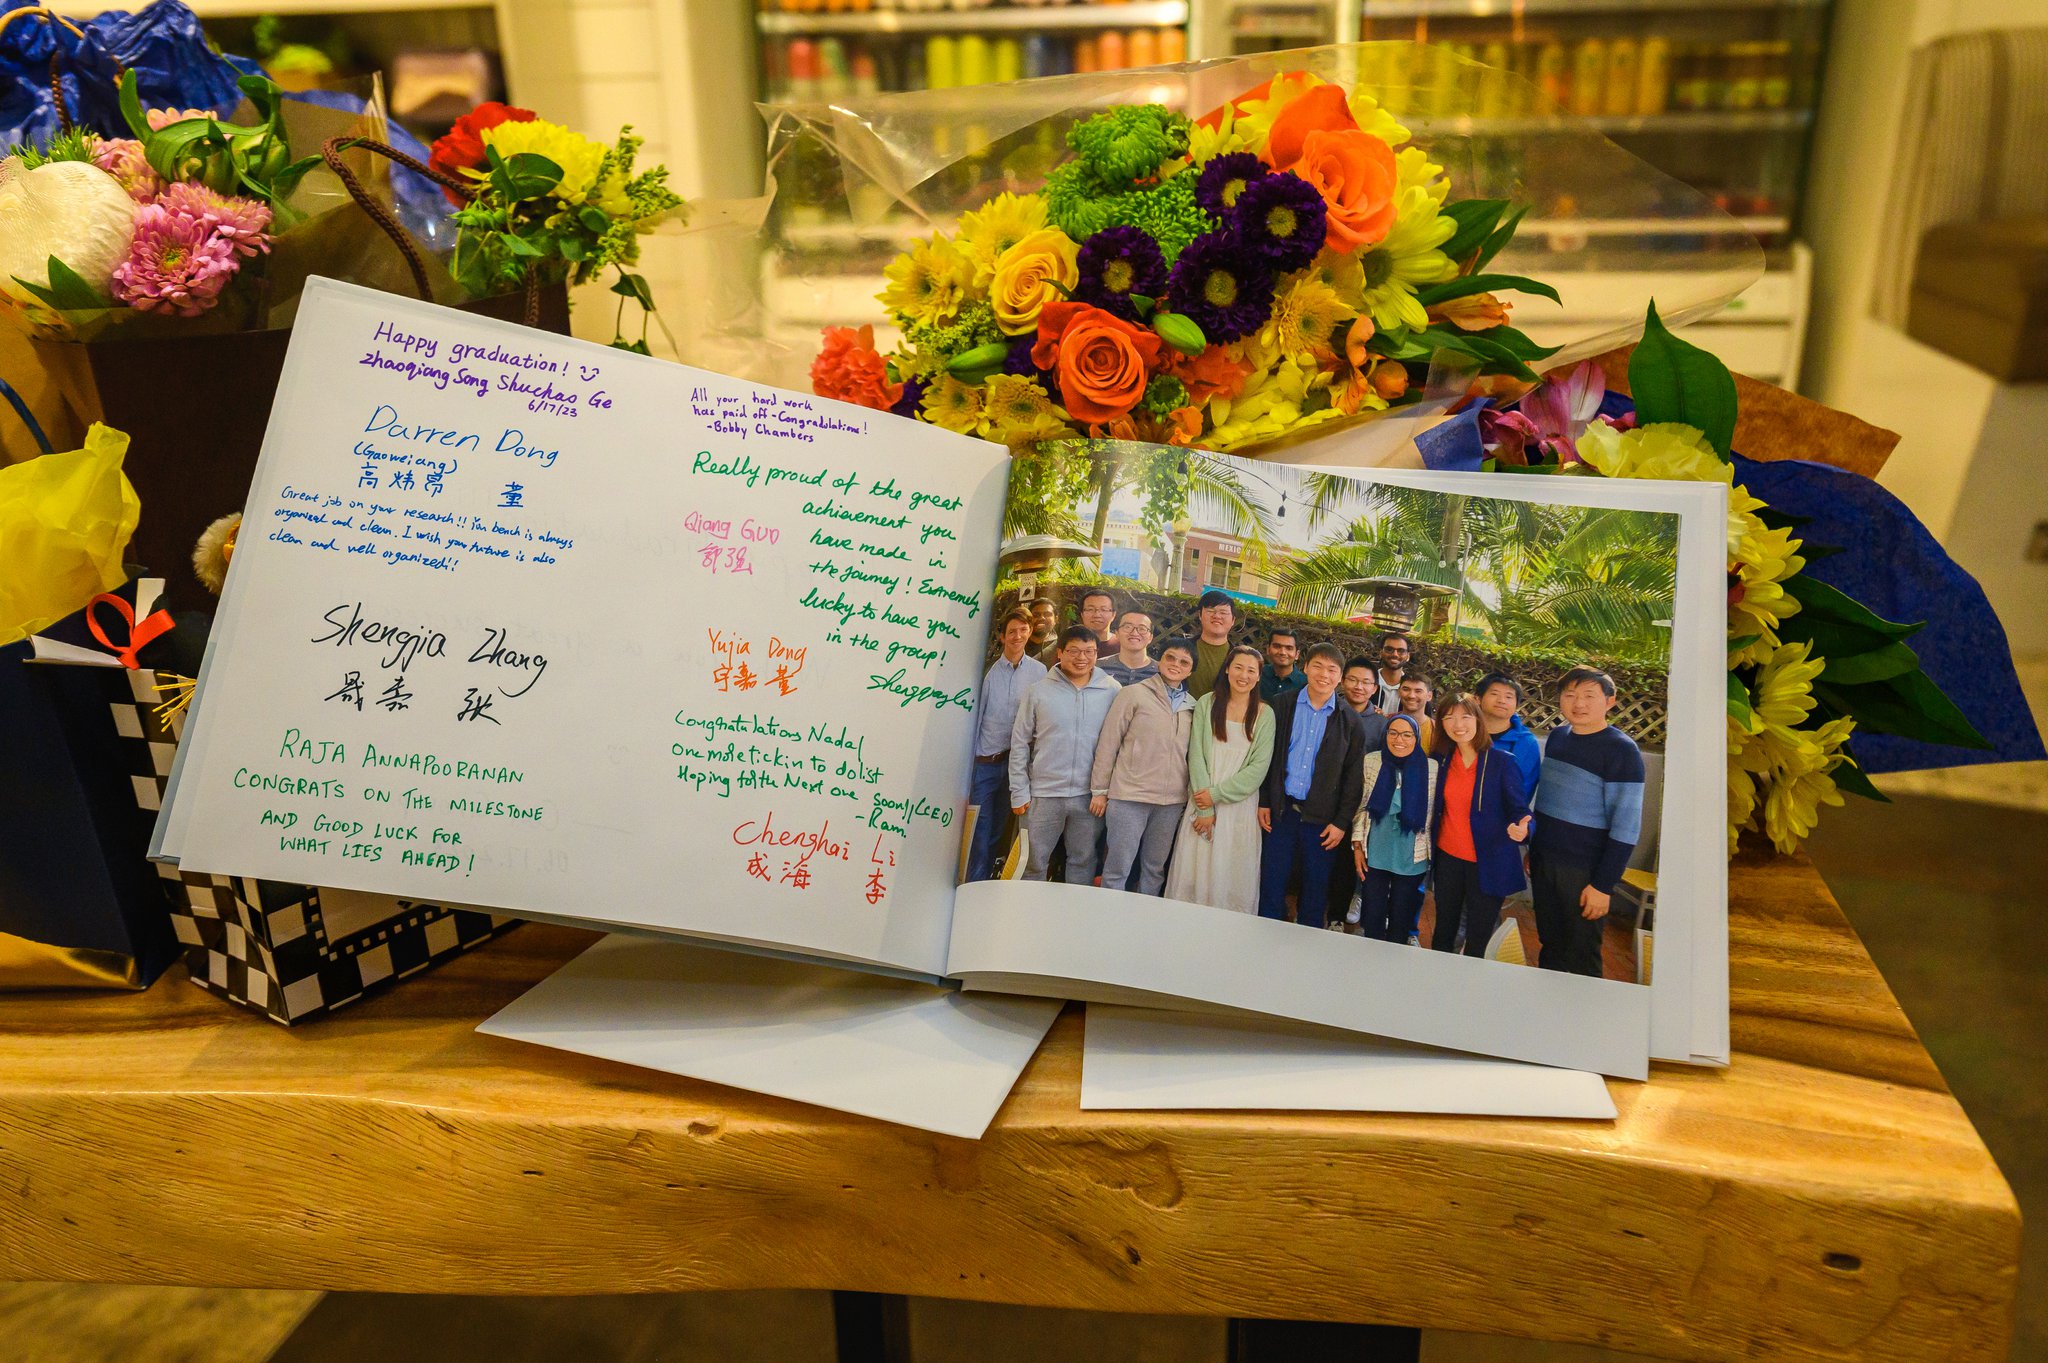 Happy graduation!
Zhaoqiang Song Shuchao Ge
6/17/23
Darren Dong
(Gaoweiang)
高炜昂 董
Great job on your research!! Your bench is always
organized and clean. I wish your future is also
clean and well organized!!
Shengjia Zhang
晟嘉 张
RAJA ANNAPOORANAN
CONGRATS ON THE MILESTONE
AND GOOD LUCK FOR
WHAT LIES AHEAD!
All your hard work
has paid off - Congradulations!
- Bobby Chambers
Really proud of the great
achievement you
have made in
the journey! Extremely
lucky to have you
in the group!
Qiang GUO
郭强
Yujia Dong
宇嘉 董
Congratulations Nadal
One more tick in to do list
Hoping for the Next one soon!! (CEO)
- Ram.
Chenghai Li
成海 李
MEXICO